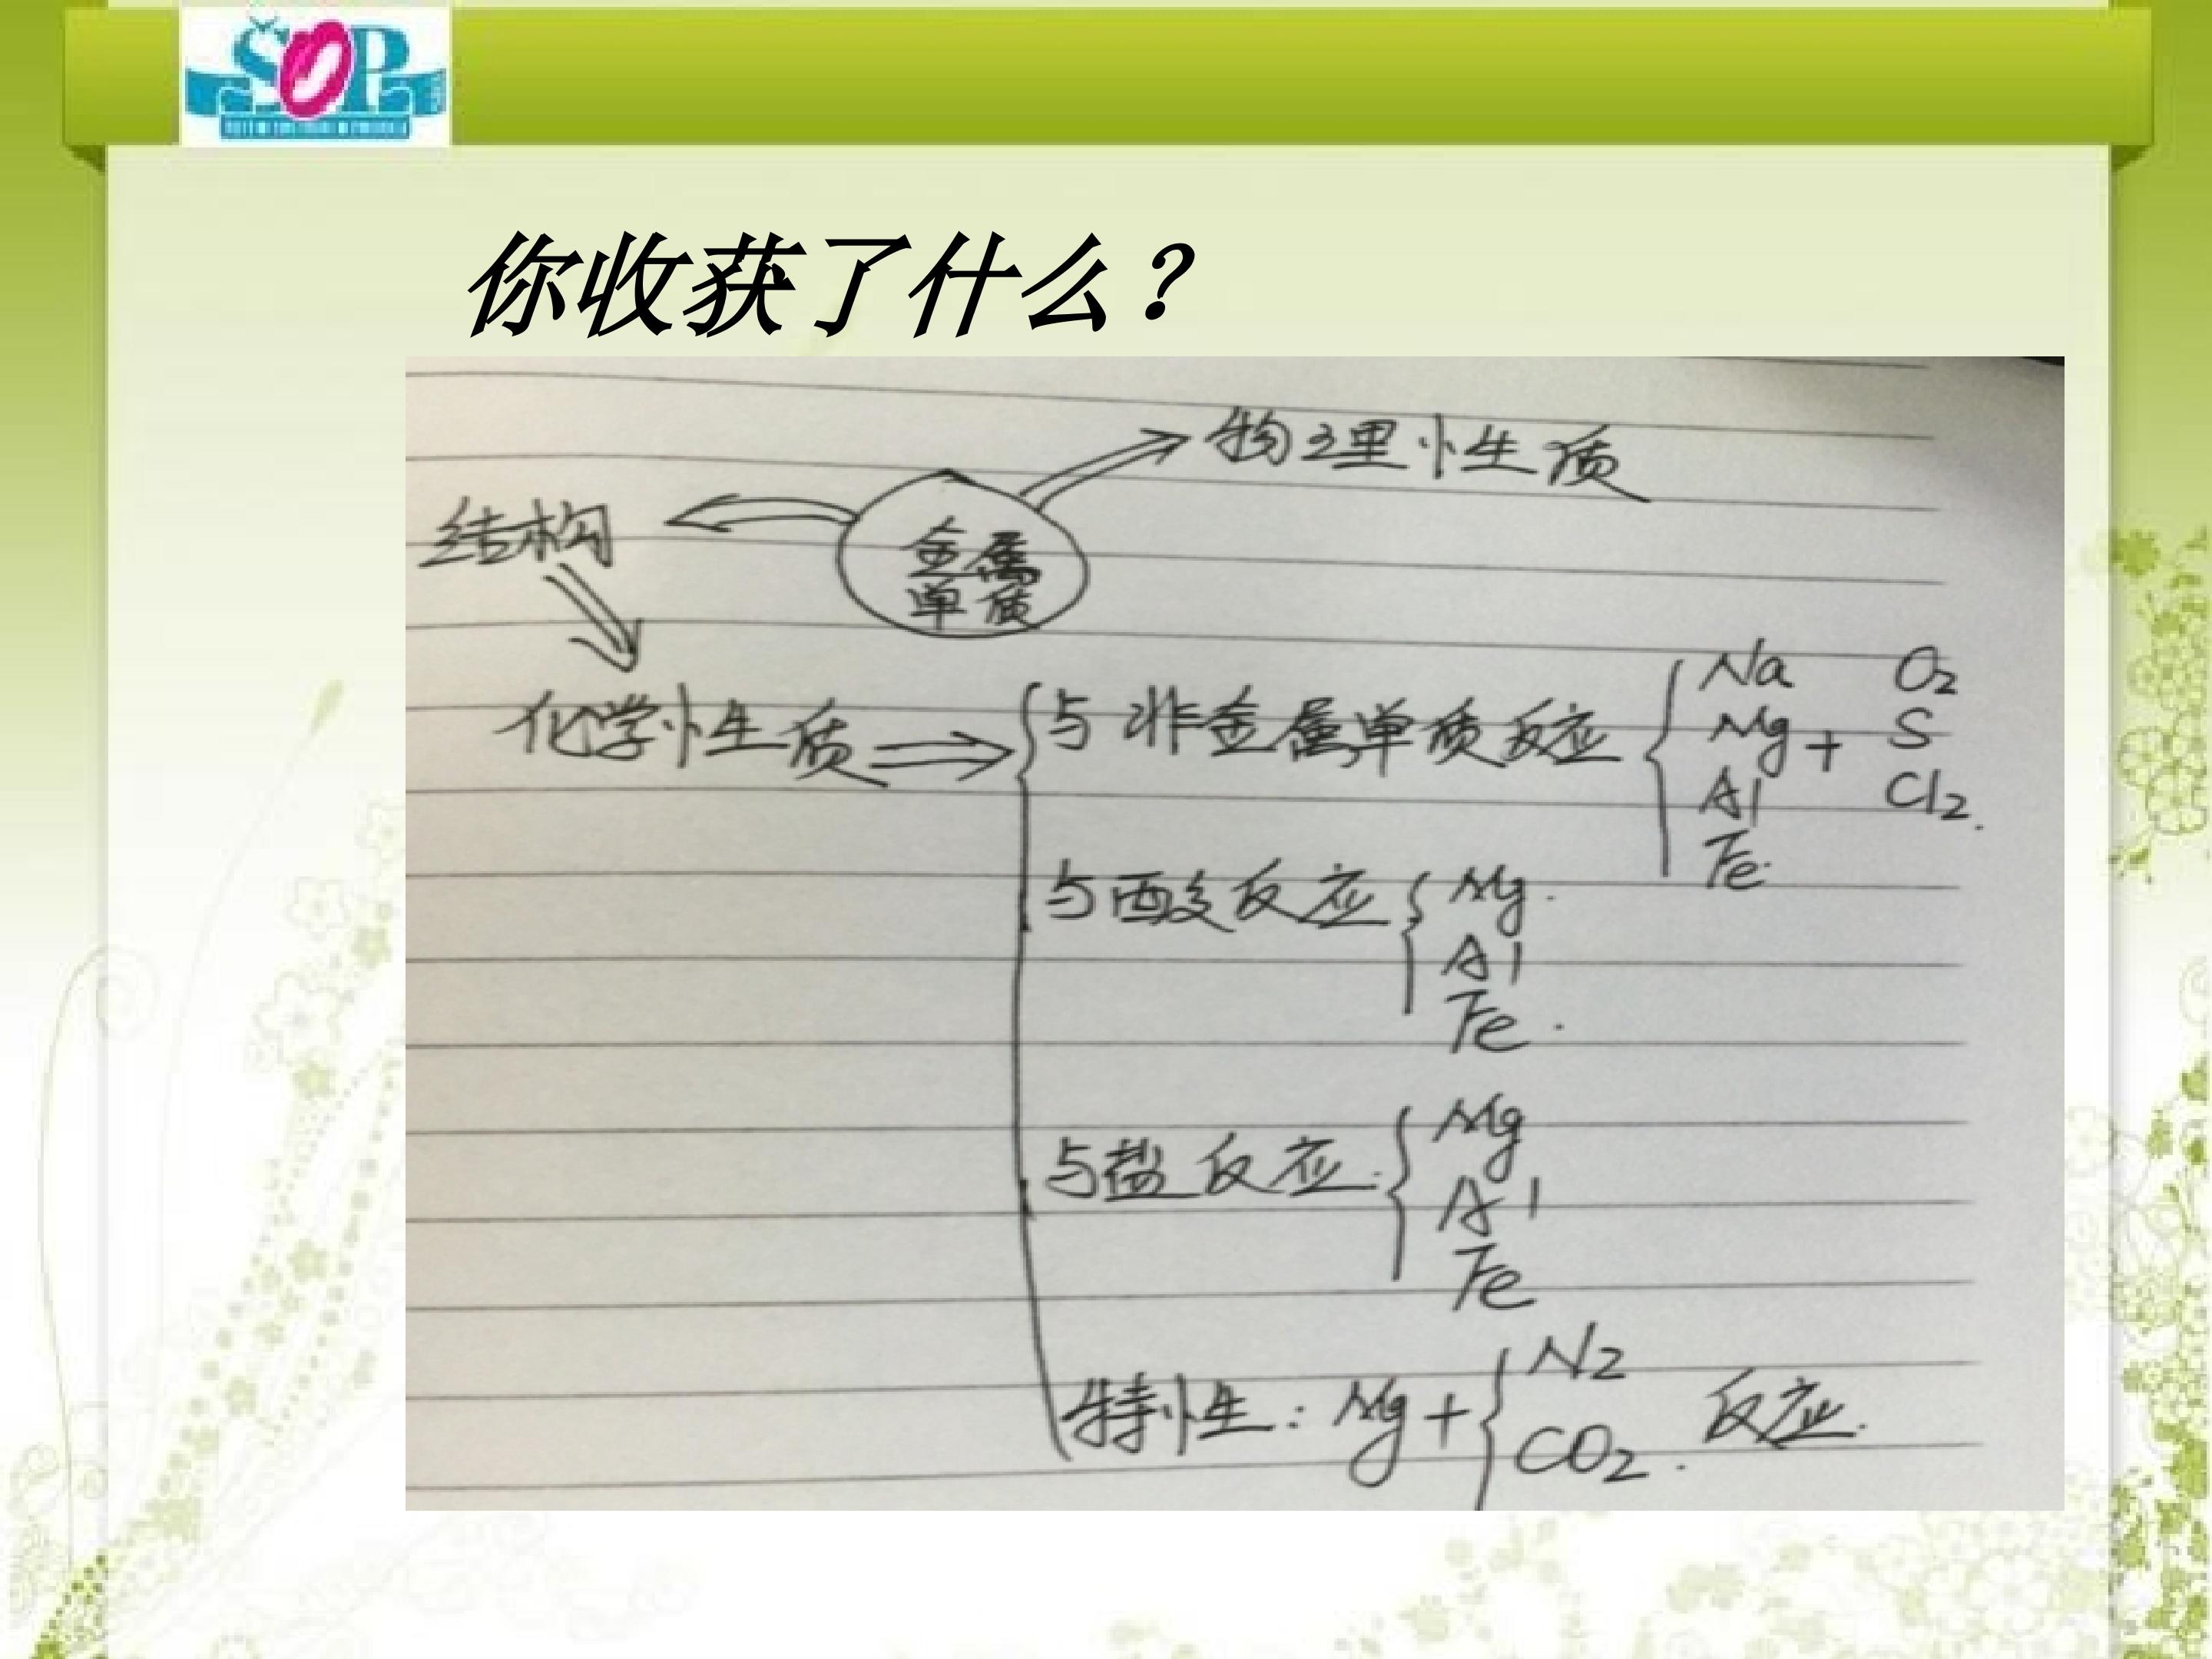 ŠOP
你收获了什么？
物理性质
结构
金属
单质
化学性质
与非金属单质反应
Na O2
Mg + S
Al Cl2.
Fe.
与酸反应
Mg.
Al
Fe.
与盐反应.
Mg
Al
Fe
特性: Mg + N2
CO2. 反应.